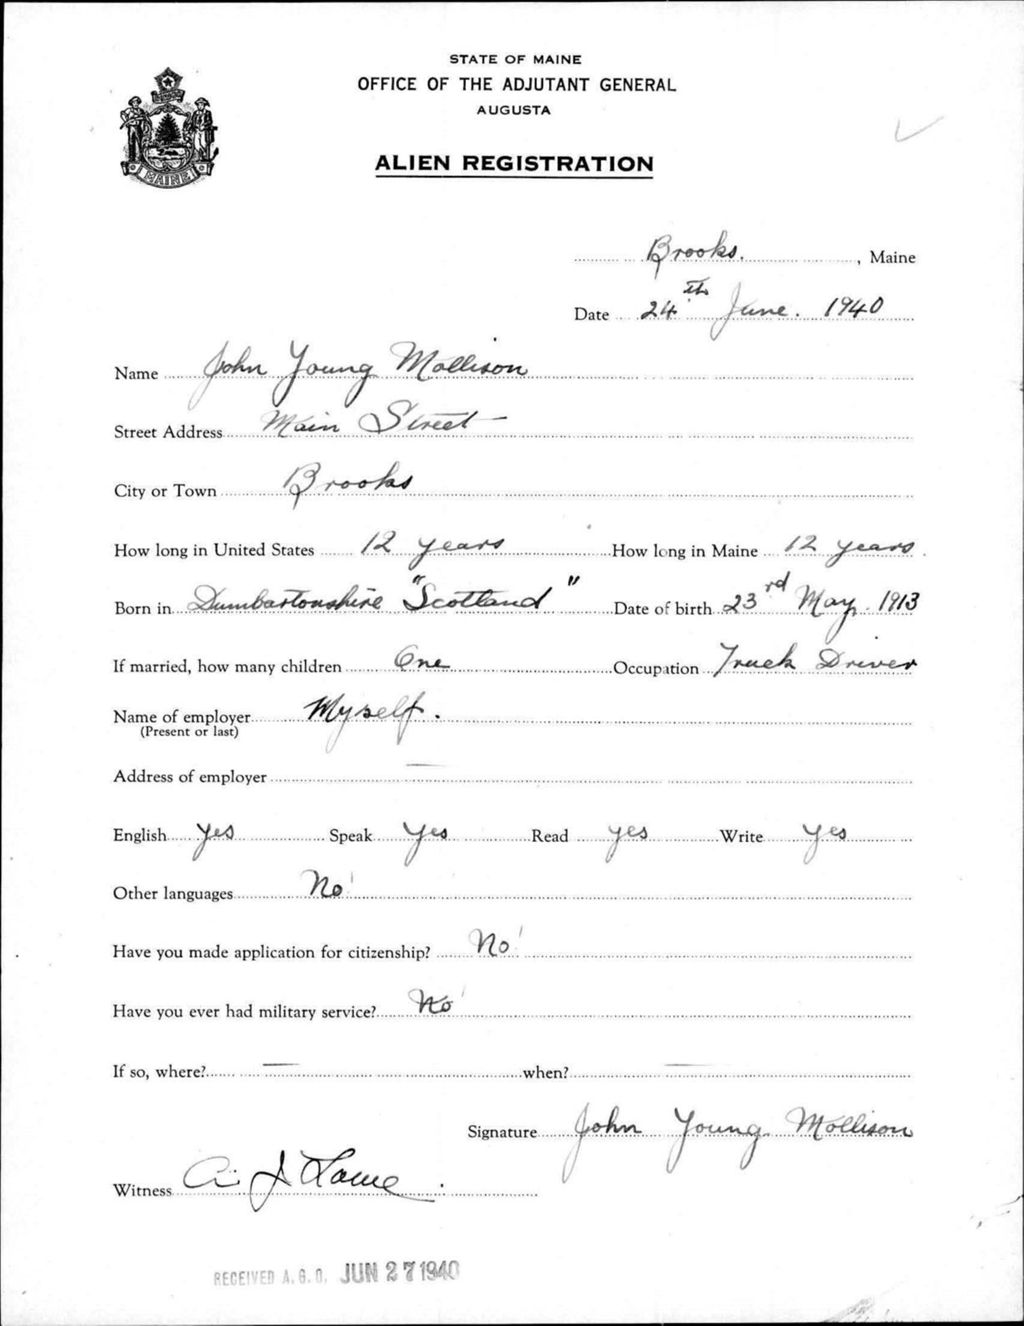 STATE OF MAINE
OFFICE OF THE ADJUTANT GENERAL
AUGUSTA
ALIEN REGISTRATION
MAINE
Brooks, Maine
Date 24th June. 1940
Name John Young Mollison
Street Address Main Street
City or Town Brooks
How long in United States 12 years How long in Maine 12 years
Born in Dumbartonshire "Scotland" Date of birth 23rd May, 1913
If married, how many children One Occupation Truck Driver
Name of employer Myself.
(Present or last)
Address of employer —
English Yes Speak Yes Read Yes Write Yes
Other languages No
Have you made application for citizenship? No
Have you ever had military service? No
If so, where? — when? —
Signature John Young Mollison
Witness A. J.
RECEIVED A.G.O. JUN 27 1940